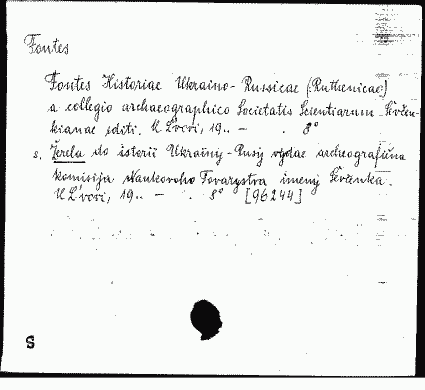 Fontes
Fontes Historiae Ukraino-Russicae (Ruthenicae)
a collegio archaeographico Societatis Scientiarum Ševčen-
kianae editi. U L'vovi, 19.. — . 8°
s. Žerela do istoriï Ukraïny-Rusy vydae archeografična
komisija Naukovoho Tovarystva imeny Ševčenka.
U L'vovi, 19.. — . 8° [96244]
S